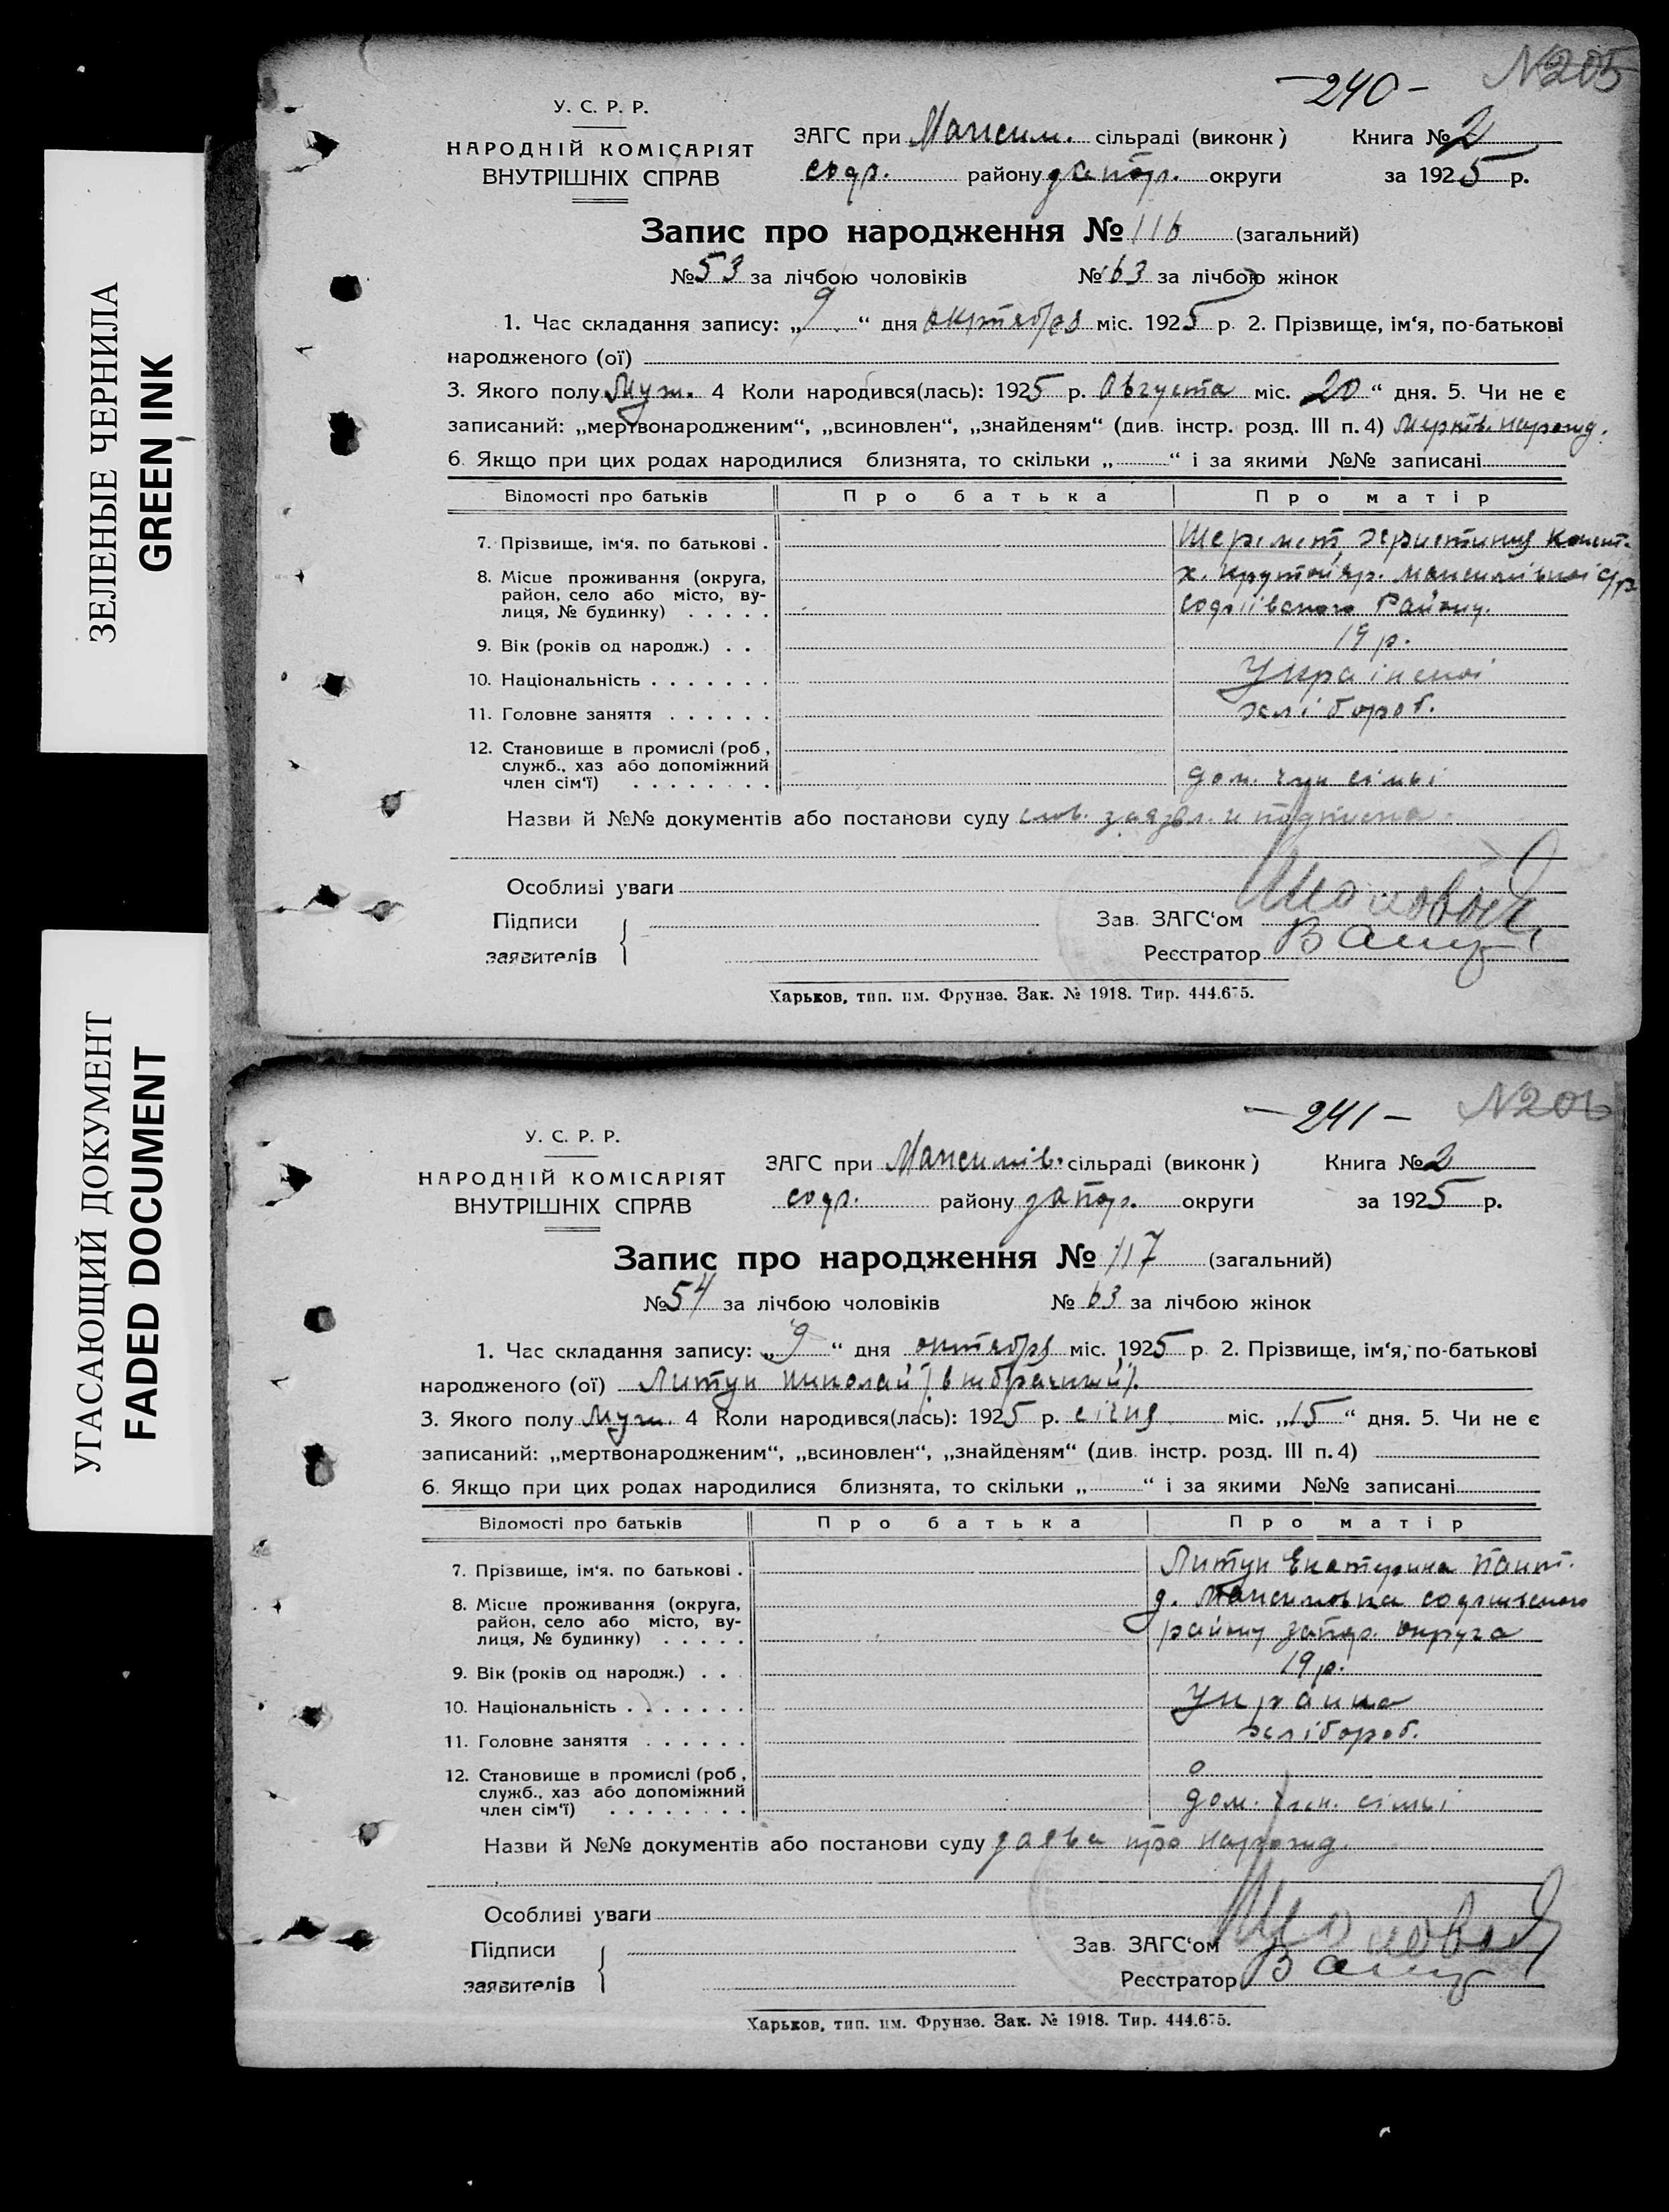 ЗЕЛЕНЫЕ ЧЕРНИЛА
GREEN INK
УГАСАЮЩИЙ ДОКУМЕНТ
FADED DOCUMENT
-240- N205
У. С. Р. Р.
НАРОДНІЙ КОМІСАРІЯТ
ВНУТРІШНІХ СПРАВ
ЗАГС при Максим. сільраді (виконк) Книга № 2
софі. району запор. округи за 1925 р.
Запис про народження № 116 (загальний)
№ 53 за лічбою чоловіків № 63 за лічбою жінок
1. Час складання запису: „9“ дня октября міс. 1925 р. 2. Прізвище, ім‘я, по-батькові
народженого (ої)
3. Якого полу Муж. 4 Коли народився(лась): 1925 р. Августа міс. 20“ дня. 5. Чи не є
записаний: „мертвонародженим“, „всиновлен“, „знайденям“ (див. інстр. розд. III п. 4) мертв. нарожд.
6. Якщо при цих родах народилися близнята, то скільки „ “ і за якими №№ записані
Відомості про батьків Про батька Про матір
7. Прізвище, ім‘я, по батькові . Шеремет Христиния
8. Місце проживання (округа, х. Крутояр. Максимівкої с/р
район, село або місто, ву-
лиця, № будинку) . . . . . Софіівского Району.
9. Вік (років од народж.) . . 19 р.
10. Національність . . . . . . . Українскі
11. Головне заняття . . . . . . хлібороб.
12. Становище в промислі (роб.,
служб., хаз або допоміжний
член сім‘ї) . . . . . . . . дом. член сімьі
Назви й №№ документів або постанови суду слов. заявл. и подписка
Особливі уваги
Підписи
заявителів
Зав. ЗАГС‘ом
Реєстратор
Харьков, тип. им. Фрунзе. Зак. № 1918. Тир. 444.675.
-241- N206
У. С. Р. Р.
НАРОДНІЙ КОМІСАРІЯТ
ВНУТРІШНІХ СПРАВ
ЗАГС при Максимів. сільраді (виконк) Книга № 2
софі. району запор. округи за 1925 р.
Запис про народження № 117 (загальний)
№ 54 за лічбою чоловіків № 63 за лічбою жінок
1. Час складання запису: „9“ дня октября міс. 1925 р. 2. Прізвище, ім‘я, по-батькові
народженого (ої) Литун Николай (внебрачний).
3. Якого полу Муж. 4 Коли народився(лась): 1925 р. січня міс. „15“ дня. 5. Чи не є
записаний: „мертвонародженим“, „всиновлен“, „знайденям“ (див. інстр. розд. III п. 4)
6. Якщо при цих родах народилися близнята, то скільки „ “ і за якими №№ записані
Відомості про батьків Про батька Про матір
7. Прізвище, ім‘я, по батькові . Литун Екатерина Пант.
8. Місце проживання (округа, д. Максимовка софиивского
район, село або місто, ву-
лиця, № будинку) . . . . . району запор. округа
9. Вік (років од народж.) . . 19 р.
10. Національність . . . . . . . Украинка
11. Головне заняття . . . . . . хлібороб.
12. Становище в промислі (роб.,
служб., хаз або допоміжний
член сім‘ї) . . . . . . . . дом. член. сімьі
Назви й №№ документів або постанови суду заява про нарожд.
Особливі уваги
Підписи
заявителів
Зав. ЗАГС‘ом
Реєстратор
Харьков, тип. им. Фрунзе. Зак. № 1918. Тир. 444.675.